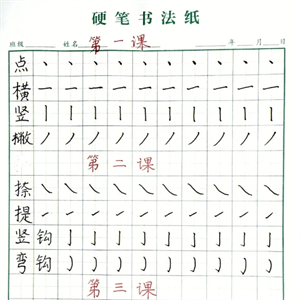 硬笔书法纸
班级 姓名 第一课 年 月 日
点 丶 丶 丶 丶 丶 丶 丶 丶
横 一 一 一 一 一 一 一 一
竖 丨 丨 丨 丨 丨 丨 丨 丨
撇 丿 丿 丿 丿 丿 丿 丿 丿
第二课
捺 ㇏ ㇏ ㇏ ㇏ ㇏ ㇏ ㇏ ㇏
提 ㇀ ㇀ ㇀ ㇀ ㇀ ㇀ ㇀ ㇀
竖钩 亅 亅 亅 亅 亅 亅 亅 亅
弯钩 ㇁ ㇁ ㇁ ㇁ ㇁ ㇁ ㇁ ㇁
第三课